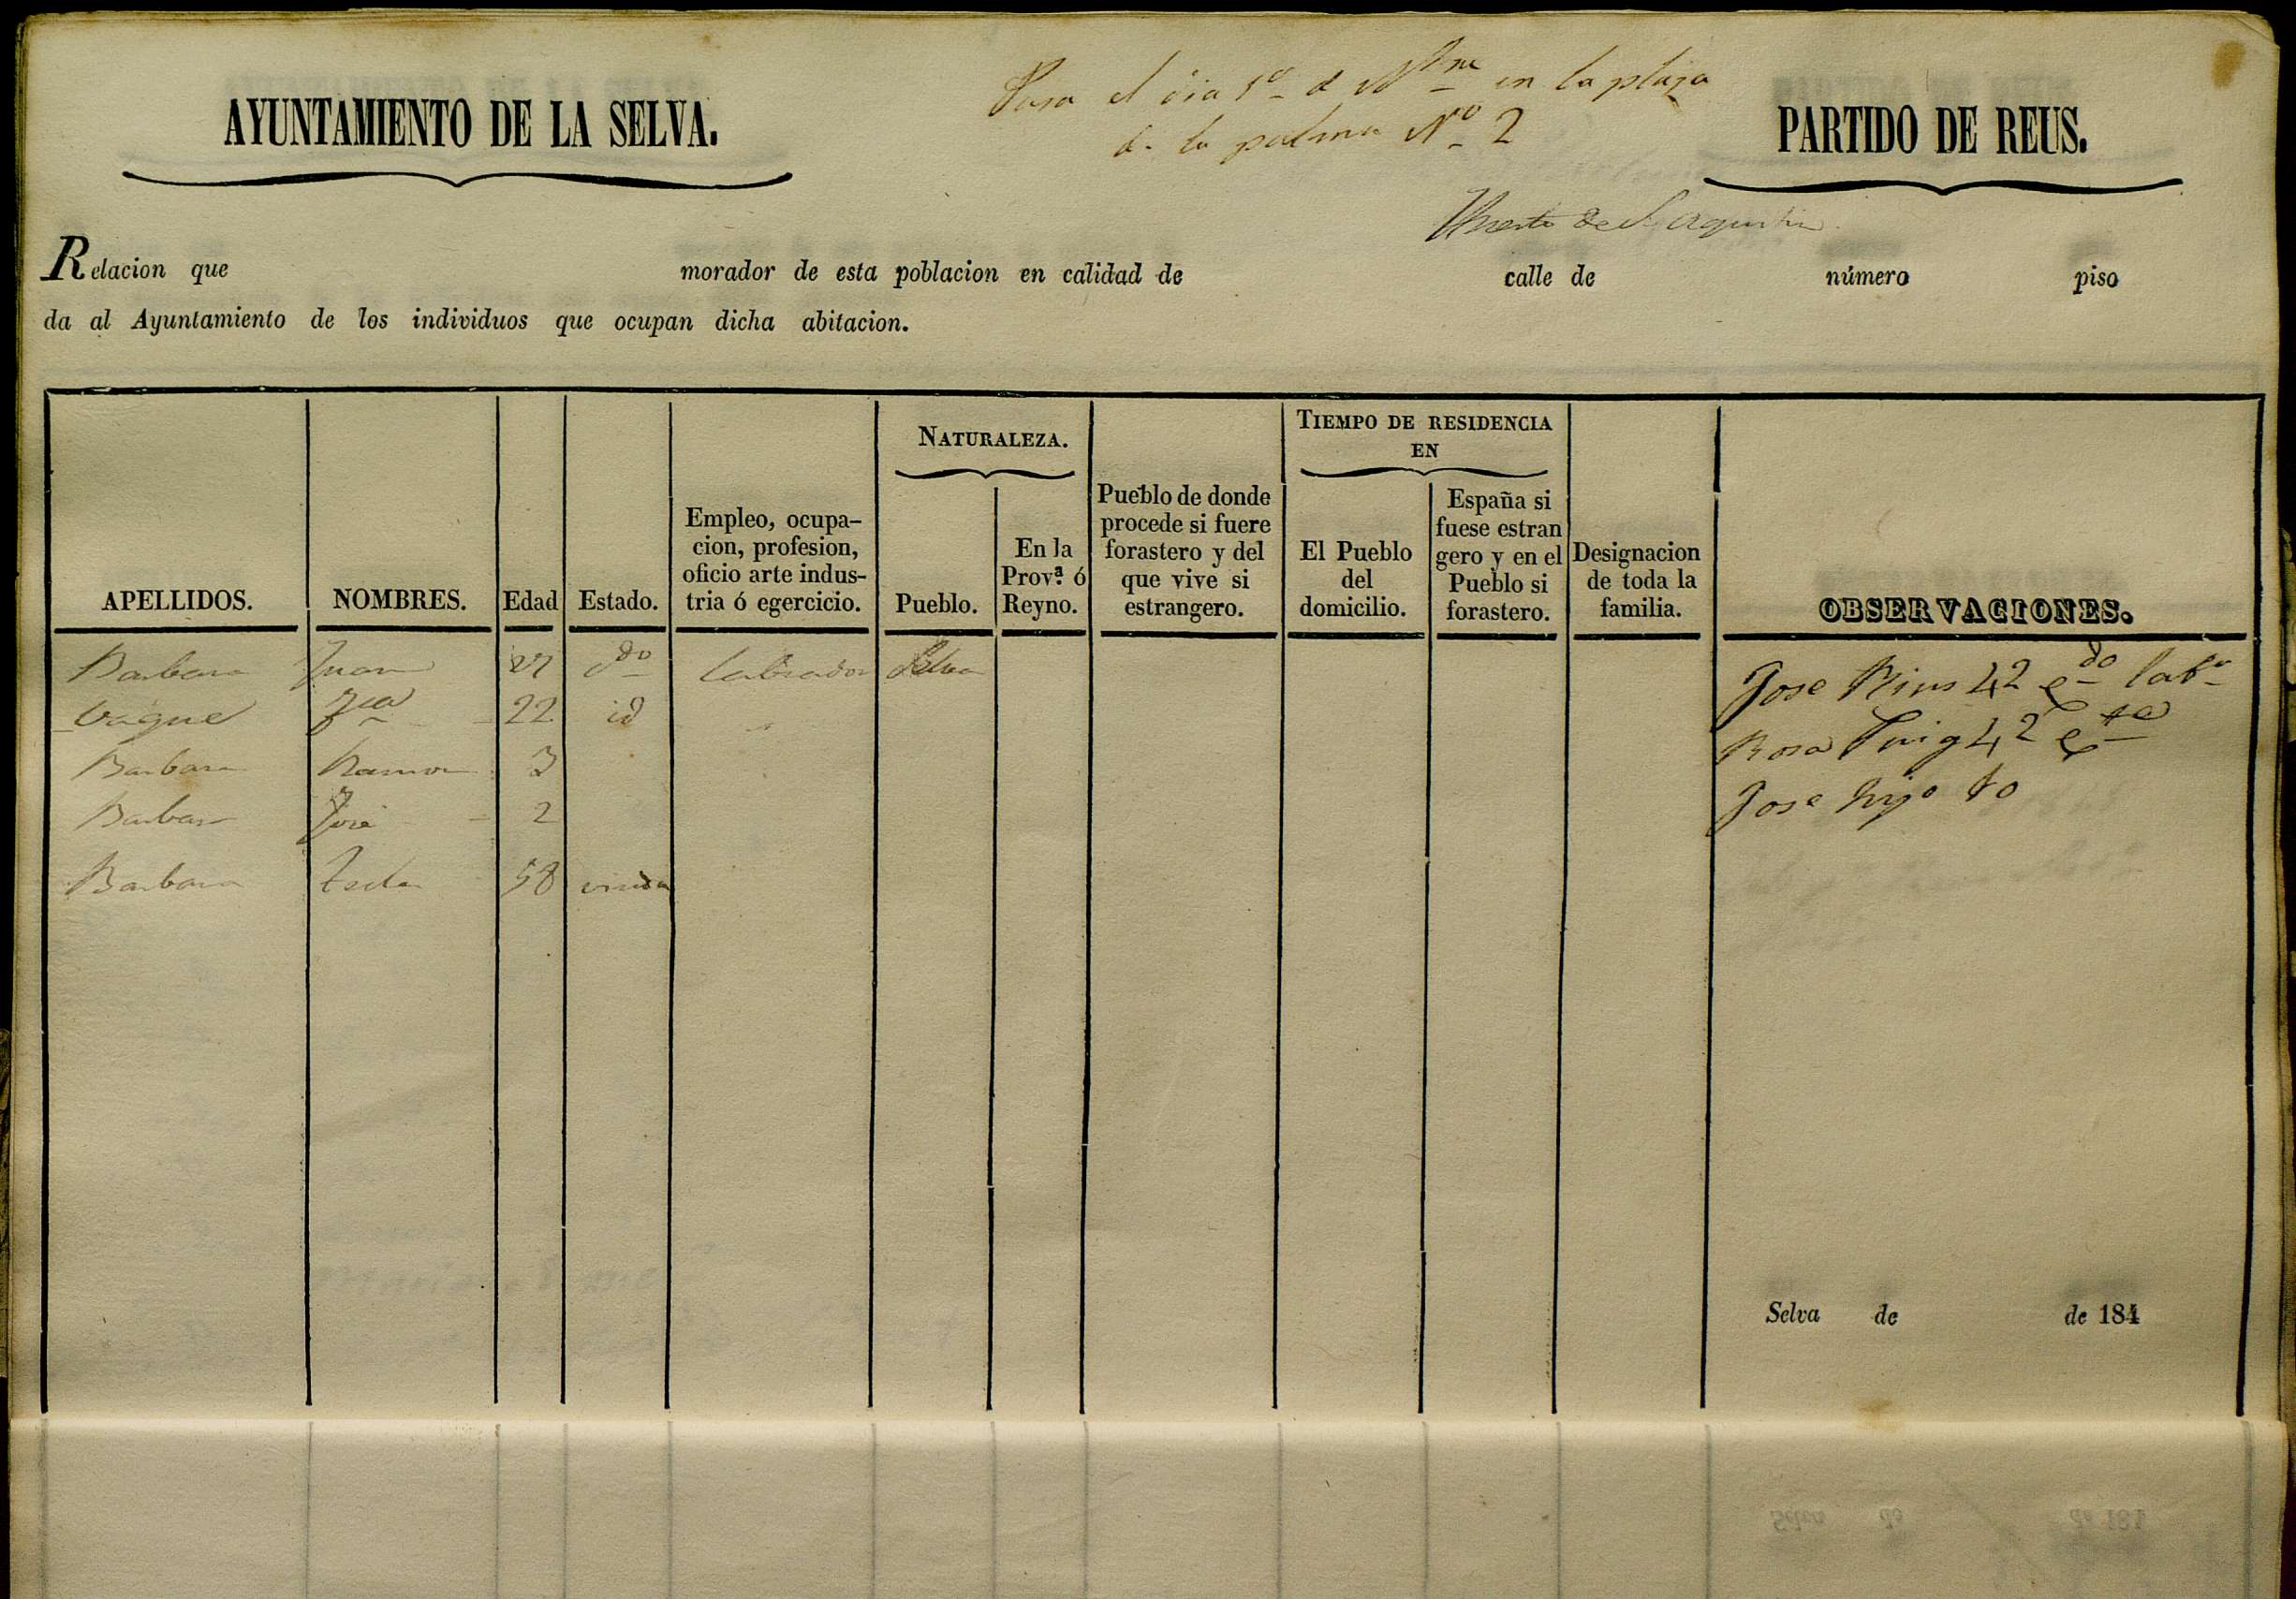 Pasa el dia 1º d Nbre en la plaza
de la palma Nº 2
AYUNTAMIENTO DE LA SELVA.
PARTIDO DE REUS.
Huerto de S Agustin
Relacion que morador de esta poblacion en calidad de calle de número piso
da al Ayuntamiento de los individuos que ocupan dicha abitacion.
APELLIDOS. NOMBRES. Edad Estado. Empleo, ocupa-
cion, profesion,
oficio arte indus-
tria ó egercicio.
NATURALEZA.
Pueblo. En la
Provª. ó
Reyno.
Pueblo de donde
procede si fuere
forastero y del
que vive si
estrangero.
TIEMPO DE RESIDENCIA
EN
El Pueblo
del
domicilio.
España si
fuese estran
gero y en el
Pueblo si
forastero.
Designacion
de toda la
familia.
OBSERVACIONES.
Barbara Juan 27 cdo labrador Selva
Vague Fca 22 id
Barbara Ramon 3
Barbara José 2
Barbara Tecla 58 viuda
Jose Rius 42 cdo labr
Rosa Puig 42
Jose hijo 10
Selva de de 184